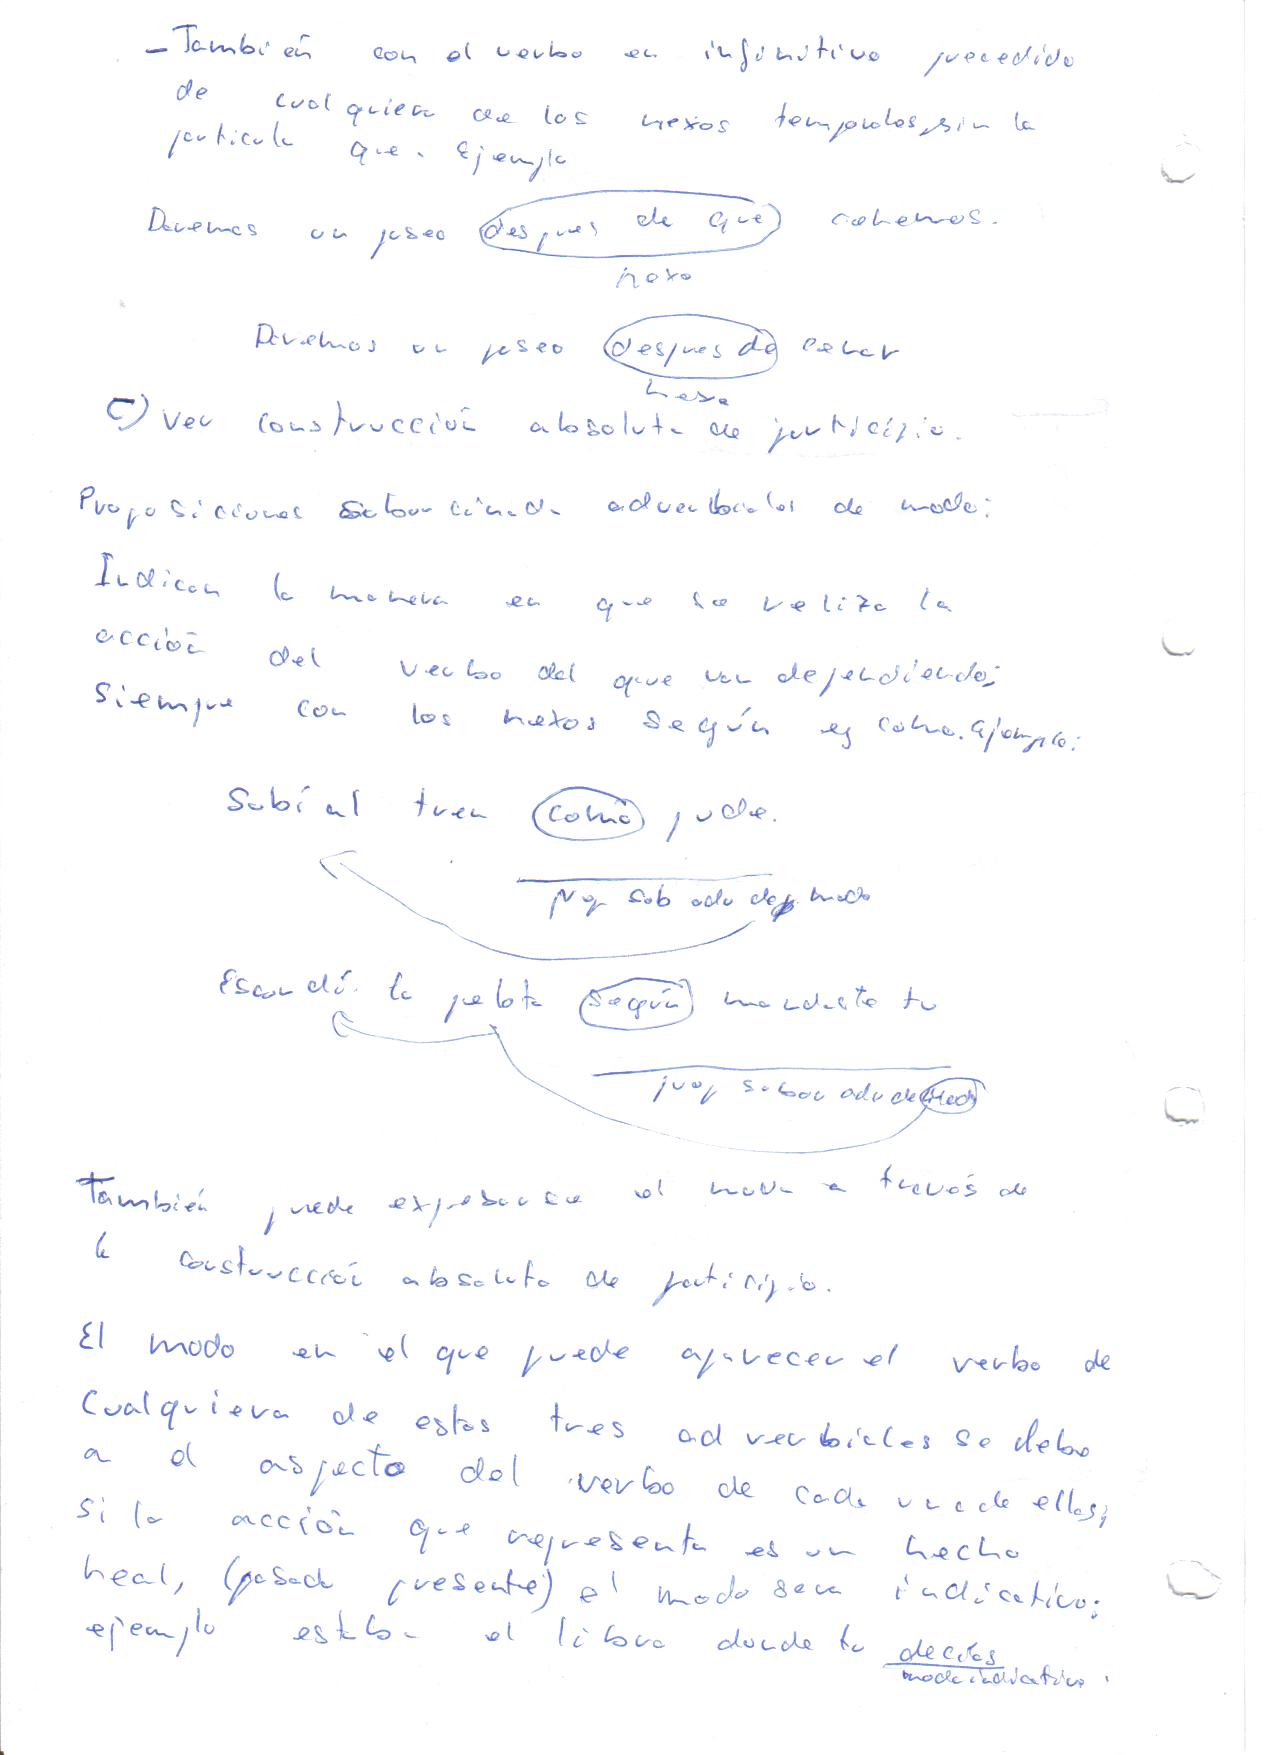 - También con el verbo en infinitivo precedido
de cualquiera de los nexos temporales, sin la
particula que. Ejemplo
Daremos un paseo despues de que cenemos.
nexo
Daremos un paseo despues de cenar
nexo
C) Ver construcción absoluta de participio.
Proposiciones subordinada adverbiales de modo:
Indican la manera en que se reliza la
acción del verbo del que van dependiendo;
siempre con los nexos según y como. Ejemplo:
Subí al tren como pude.
prop sub adv de modo
Escondí la pelota según mandaste tu
prop subor adv de modo
También puede expresarse el modo a través de
la construcción absoluta de participio.
El modo en el que puede aparecer el verbo de
cualquiera de estas tres adverbiales se debe
a el aspecto del verbo de cada una de ellas;
si la acción que representa es un hecho
real, (pasado presente) el modo sera indicativo:
ejemplo estaba el libro donde tu decías
modo indicativo.